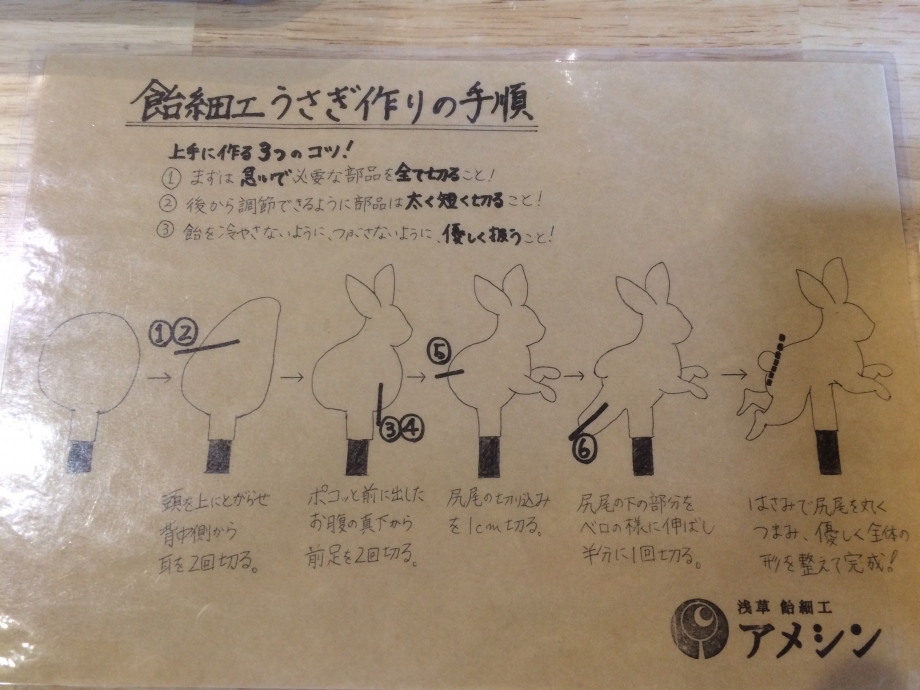 飴細工うさぎ作りの手順
上手に作る3つのコツ!
① まずは急いで必要な部品を全て切ること!
② 後から調節できるように部品は太く短く切ること!
③ 飴を冷やさないように、つぶさないように、優しく扱うこと!
①②
③④
⑤
⑥
頭を上にとがらせ
背中側から
耳を2回切る。
ポコッと前に出した
お腹の真下から
前足を2回切る。
尻尾の切り込み
を1cm切る。
尻尾の下の部分を
ベロの様に伸ばし
半分に1回切る。
はさみで尻尾を丸く
つまみ、優しく全体の
形を整えて完成!
浅草 飴細工
アメシン